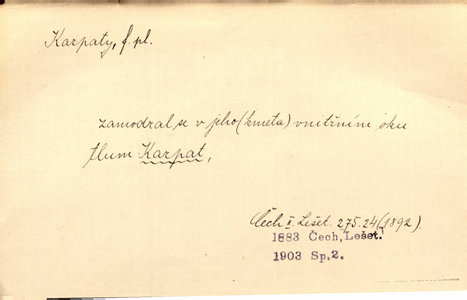 Karpaty, f. pl.
zamodral se v jeho (kmeta) vnitřním oku
tlum Karpat,
Čech II. Lešet. 275.24 (1892).
1883 Čech, Lešet.
1903 Sp.2.